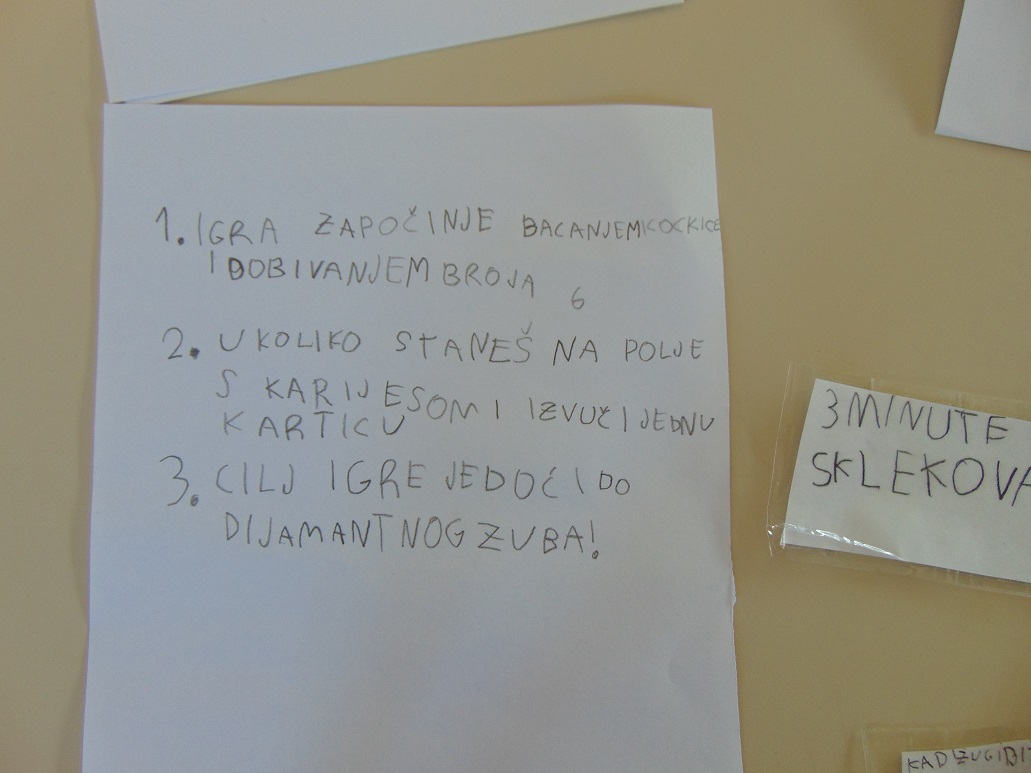 1. IGRA ZAPOČINJE BACANJEM KOCKICE
I DOBIVANJEM BROJA 6
2. UKOLIKO STANEŠ NA POLJE
S KARIJESOM I IZVUČI JEDNU
KARTICU
3. CILJ IGRE JE DOĆI DO
DIJAMANTNOG ZUBA!
3 MINUTE
SKLEKOVA
KAD